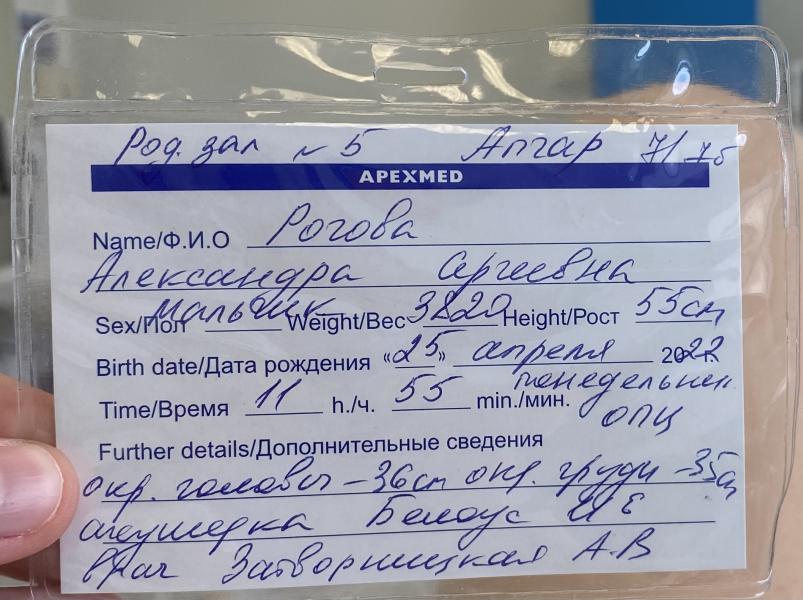 Род. зал № 5 Апгар 7/7б
APEXMED
Name/Ф.И.О Рогова
Александра Сергеевна
Sex/Пол мальчик Weight/Вес 3820 Height/Рост 55см
Birth date/Дата рождения «25» апреля 2022 г.
понедельник
Time/Время 11 h./ч. 55 min./мин.
ОПЦ
Further details/Дополнительные сведения
окр. головы - 36см окр. груди - 35см
акушерка Белоус И Е
врач Затворницкая А.В